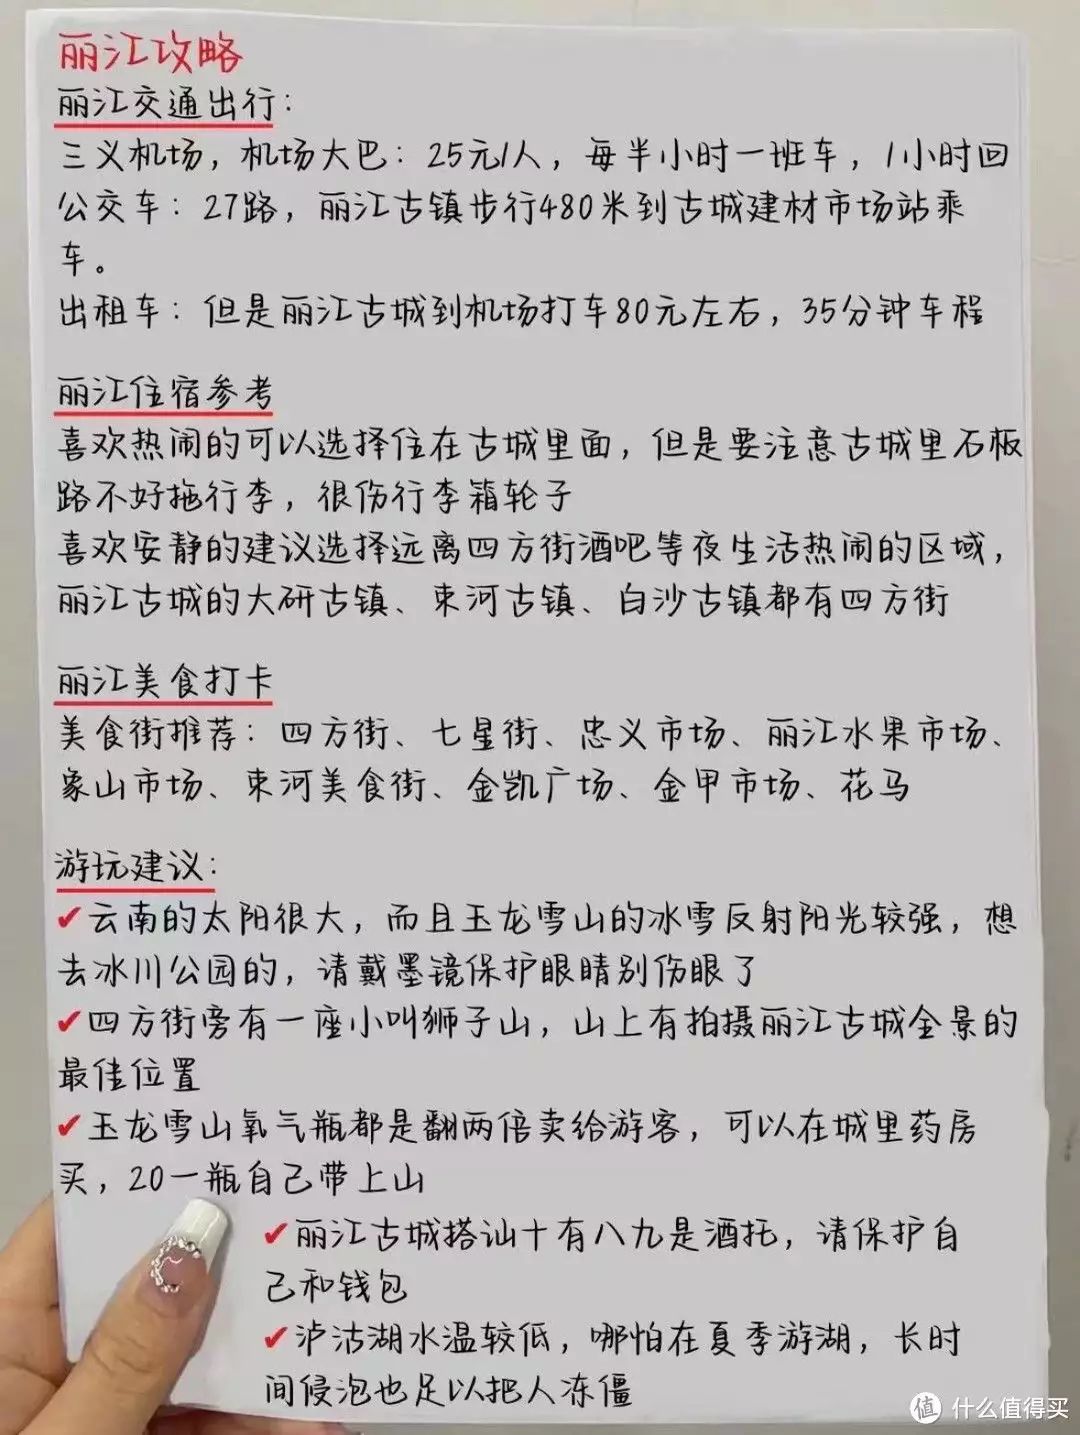 丽江攻略
丽江交通出行：
三义机场，机场大巴：25元1人，每半小时一班车，1小时回
公交车：27路，丽江古镇步行480米到古城建材市场站乘
车。
出租车：但是丽江古城到机场打车80元左右，35分钟车程
丽江住宿参考
喜欢热闹的可以选择住在古城里面，但是要注意古城里石板
路不好拖行李，很伤行李箱轮子
喜欢安静的建议选择远离四方街酒吧等夜生活热闹的区域，
丽江古城的大研古镇、束河古镇、白沙古镇都有四方街
丽江美食打卡
美食街推荐：四方街、七星街、忠义市场、丽江水果市场、
象山市场、束河美食街、金凯广场、金甲市场、花马
游玩建议：
✔云南的太阳很大，而且玉龙雪山的冰雪反射阳光较强，想
去冰川公园的，请戴墨镜保护眼睛别伤眼了
✔四方街旁有一座小叫狮子山，山上有拍摄丽江古城全景的
最佳位置
✔玉龙雪山氧气瓶都是翻两倍卖给游客，可以在城里药房
买，20一瓶自己带上山
✔丽江古城搭讪十有八九是酒托，请保护自
己和钱包
✔泸沽湖水温较低，哪怕在夏季游湖，长时
间侵泡也足以把人冻僵
值 什么值得买